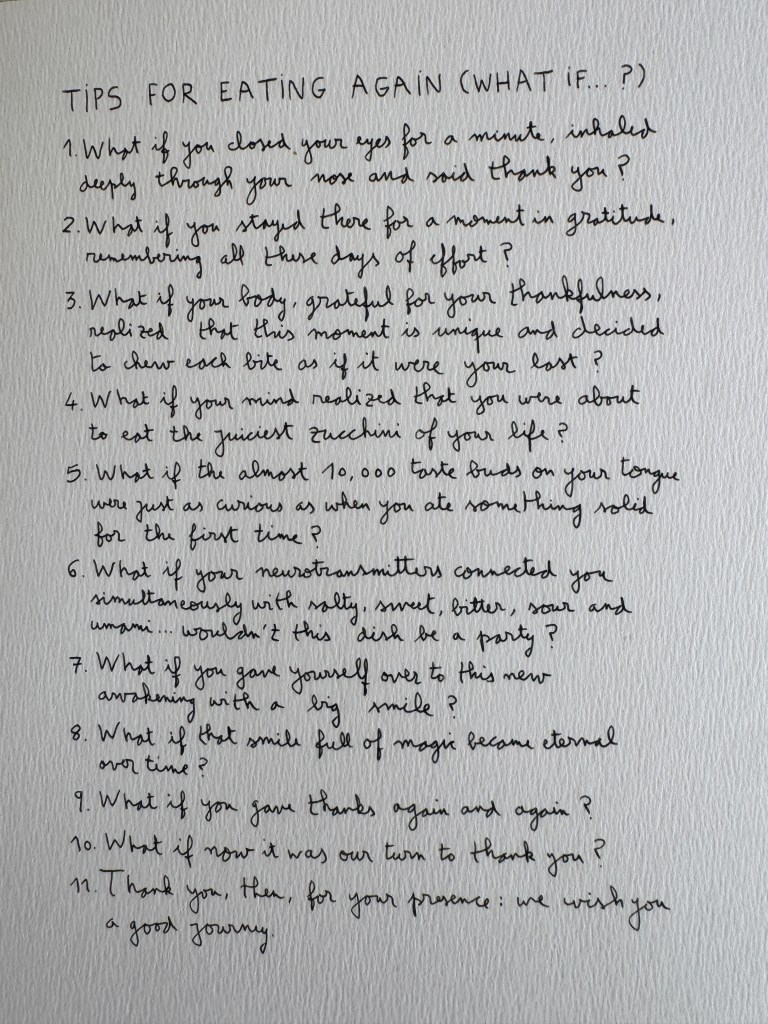 TIPS FOR EATING AGAIN (WHAT IF... ?)
1. What if you closed your eyes for a minute, inhaled
deeply through your nose and said thank you ?
2. What if you stayed there for a moment in gratitude,
remembering all these days of effort ?
3. What if your body, grateful for your thankfulness,
realized that this moment is unique and decided
to chew each bite as if it were your last ?
4. What if your mind realized that you were about
to eat the juiciest zucchini of your life ?
5. What if the almost 10,000 taste buds on your tongue
were just as curious as when you ate something solid
for the first time ?
6. What if your neurotransmitters connected you
simultaneously with salty, sweet, bitter, sour and
umami... wouldn't this dish be a party ?
7. What if you gave yourself over to this new
awakening with a big smile ?
8. What if that smile full of magic became eternal
over time ?
9. What if you gave thanks again and again ?
10. What if now it was our turn to thank you ?
11. Thank you, then, for your presence: we wish you
a good journey.